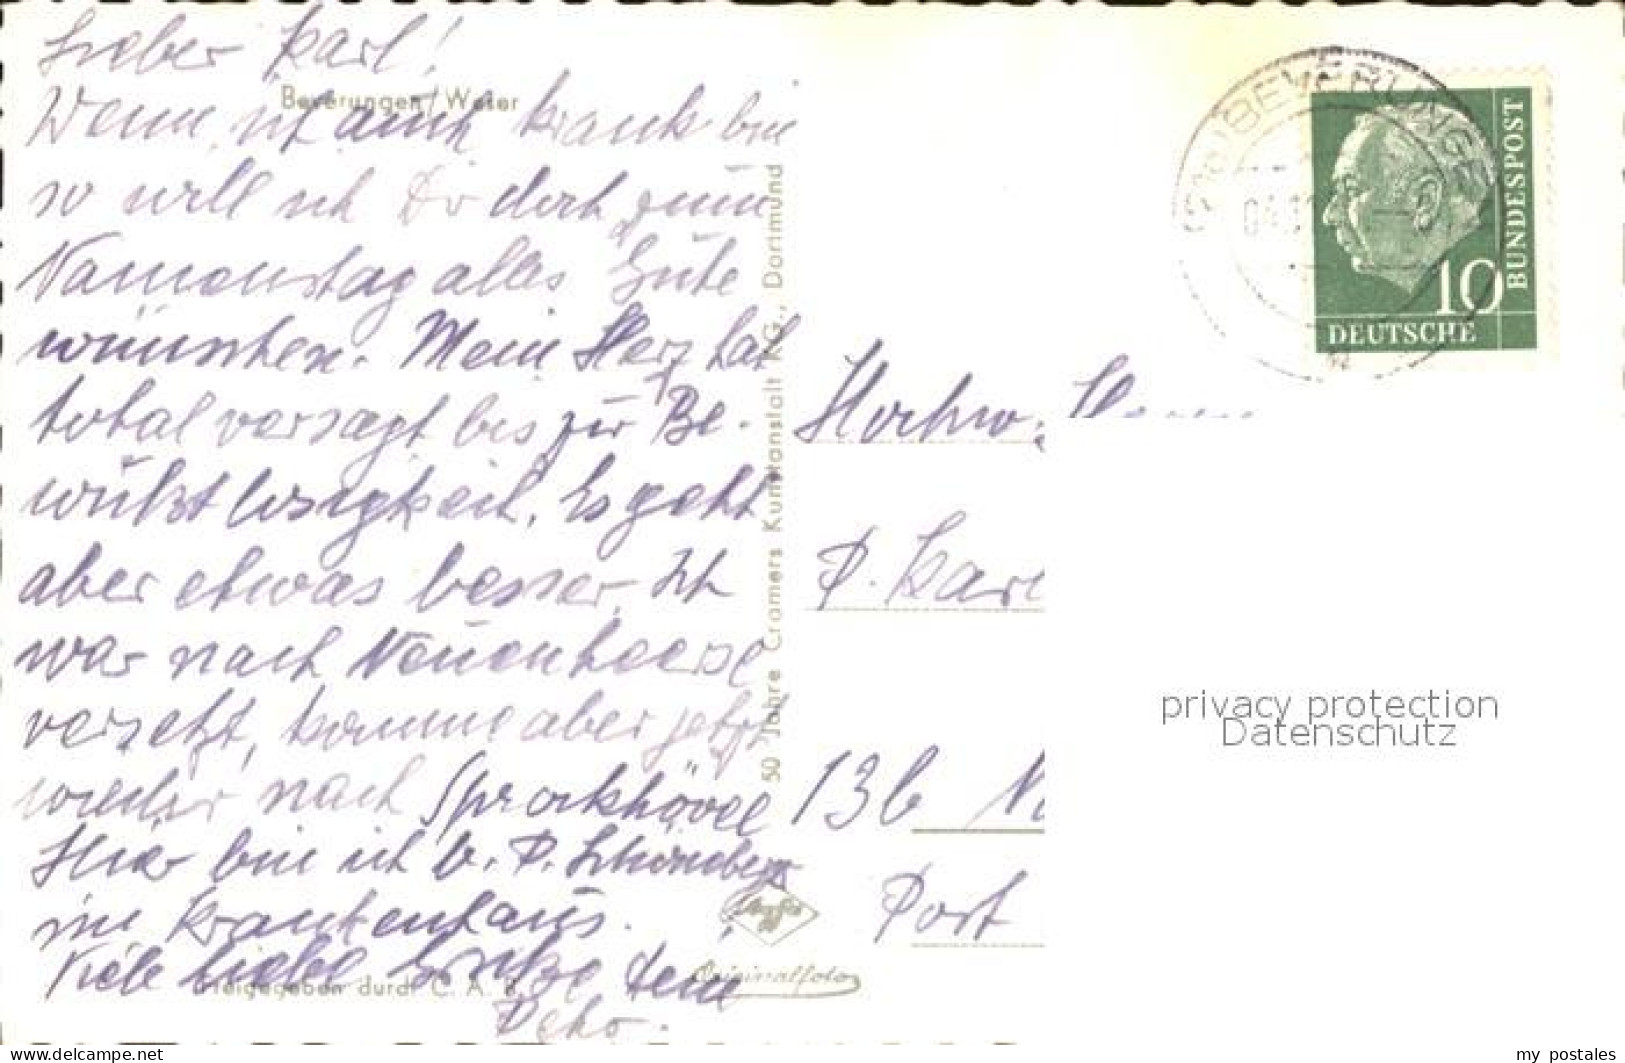 Lieber Karl!
Beverungen/Weser
Wenn ich auch krank bin
so will ich Dir doch zum
Namenstag alles Gute
wünschen. Mein Herz hat
total versagt bis zur Be-
wußtlosigkeit. Es geht
aber etwas besser. Ich
war nach Neuenheerse
versetzt, komme aber jetzt
wieder nach Sprockhövel
Hier bin ich b. P. Schöneberg
im Krankenhaus.
Viele liebe Grüße dein
Freigegeben durch C. A. B.
50 Jahre Cramers Kunstanstalt KG., Dortmund
Agfa
Originalfoto
BEVERUNGE
DEUTSCHE
BUNDESPOST
10
Hochw. Herrn
P. Karl
13b
Post
privacy protection
Datenschutz
my postales
www.delcampe.net